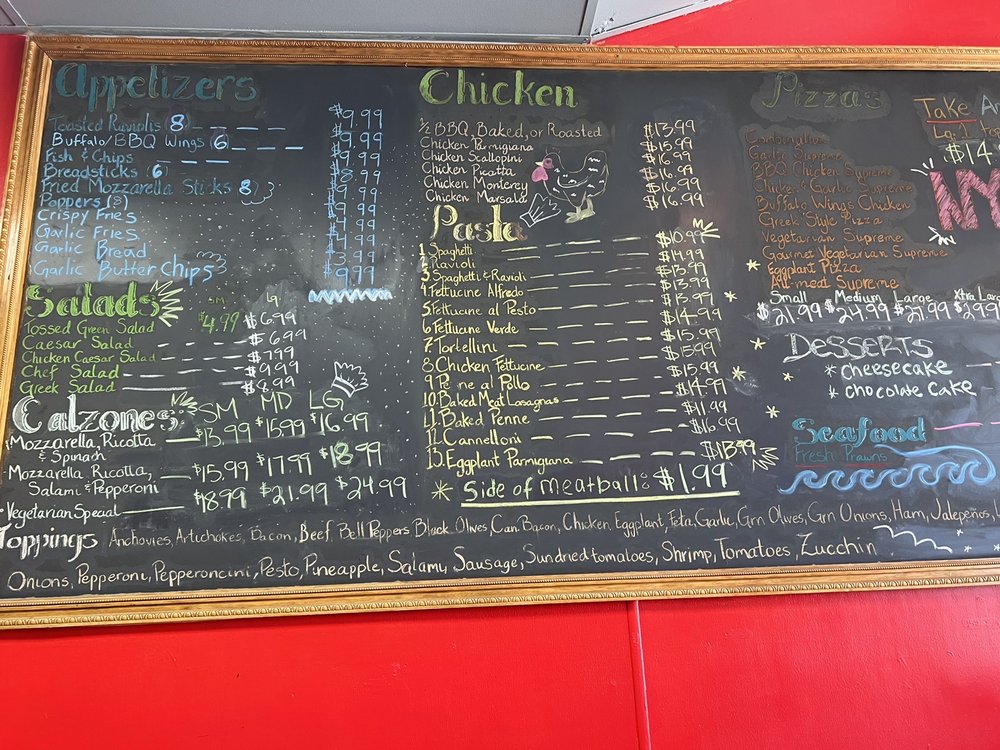 Appetizers
Toasted Raviolis (8)
Buffalo/BBQ Wings (6)
Fish & Chips
Breadsticks (6)
Fried Mozzarella Sticks (8)
Poppers (8)
Crispy Fries
Garlic Fries
Garlic Bread
Garlic Butter Chips
$9.99
Salads
SM LG
Tossed Green Salad $4.99 $6.99
Caesar Salad $6.99
Chicken Caesar Salad $7.99
Chef Salad $9.99
Greek Salad $8.99
Calzones SM MD LG
Mozzarella, Ricotta & Spinach $13.99 $15.99 $16.99
Mozzarella, Ricotta, Salami & Pepperoni $15.99 $17.99 $18.99
Vegetarian Special $18.99 $21.99 $24.99
Chicken
1/2 BBQ, Baked, or Roasted $13.99
Chicken Parmigiana $15.99
Chicken Scallopini $16.99
Chicken Picatta $16.99
Chicken Monterey $16.99
Chicken Marsala $16.99
Pasta
1. Spaghetti $10.99
2. Ravioli $14.99
3. Spaghetti & Ravioli $13.99
4. Fettucine Alfredo $13.99
5. Fettucine al Pesto $13.99
6. Fettucine Verde $14.99
7. Tortellini $15.99
8. Chicken Fettucine $15.99
9. Penne al Pollo $15.99
10. Baked Meat Lasagnas $14.99
11. Baked Penne $11.99
12. Cannelloni $16.99
13. Eggplant Parmigiana $13.99
Side of meatballs $1.99
Pizzas
Combination
Garlic Supreme
BBQ Chicken Supreme
Chicken & Garlic Supreme
Buffalo Wings Chicken
Greek Style Pizza
Vegetarian Supreme
Gourmet Vegetarian Supreme
Eggplant Pizza
All meat Supreme
Small Medium Large Xtra
$21.99 $24.99 $27.99
Take
Lg. 1
$14
Desserts
cheesecake
chocolate cake
Seafood
Fresh Prawns
Toppings Anchovies, Artichokes, Bacon, Beef, Bell Peppers Black Olives, Can Bacon, Chicken, Eggplant, Feta, Garlic, Grn Olives, Grn Onions, Ham, Jalepeños,
Onions, Pepperoni, Pepperoncini, Pesto, Pineapple, Salami, Sausage, Sundried tomatoes, Shrimp, Tomatoes, Zucchin